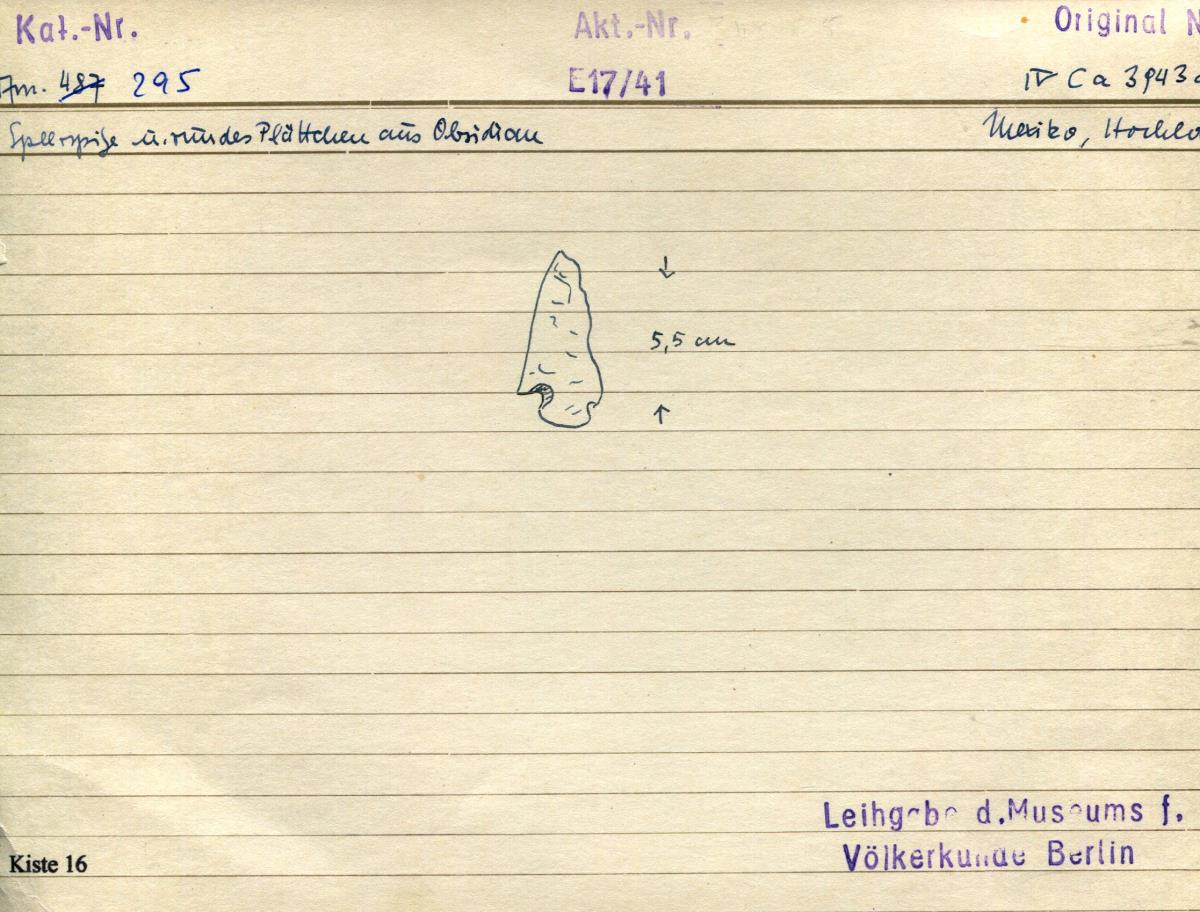 Kat.-Nr. Akt.-Nr. Original N
Am. 487 295 E17/41 IV Ca 3943
Speerspitze u. rundes Plättchen aus Obsidian Mexiko, Hochla
5,5 cm
Leihgabe d. Museums f.
Völkerkunde Berlin
Kiste 16